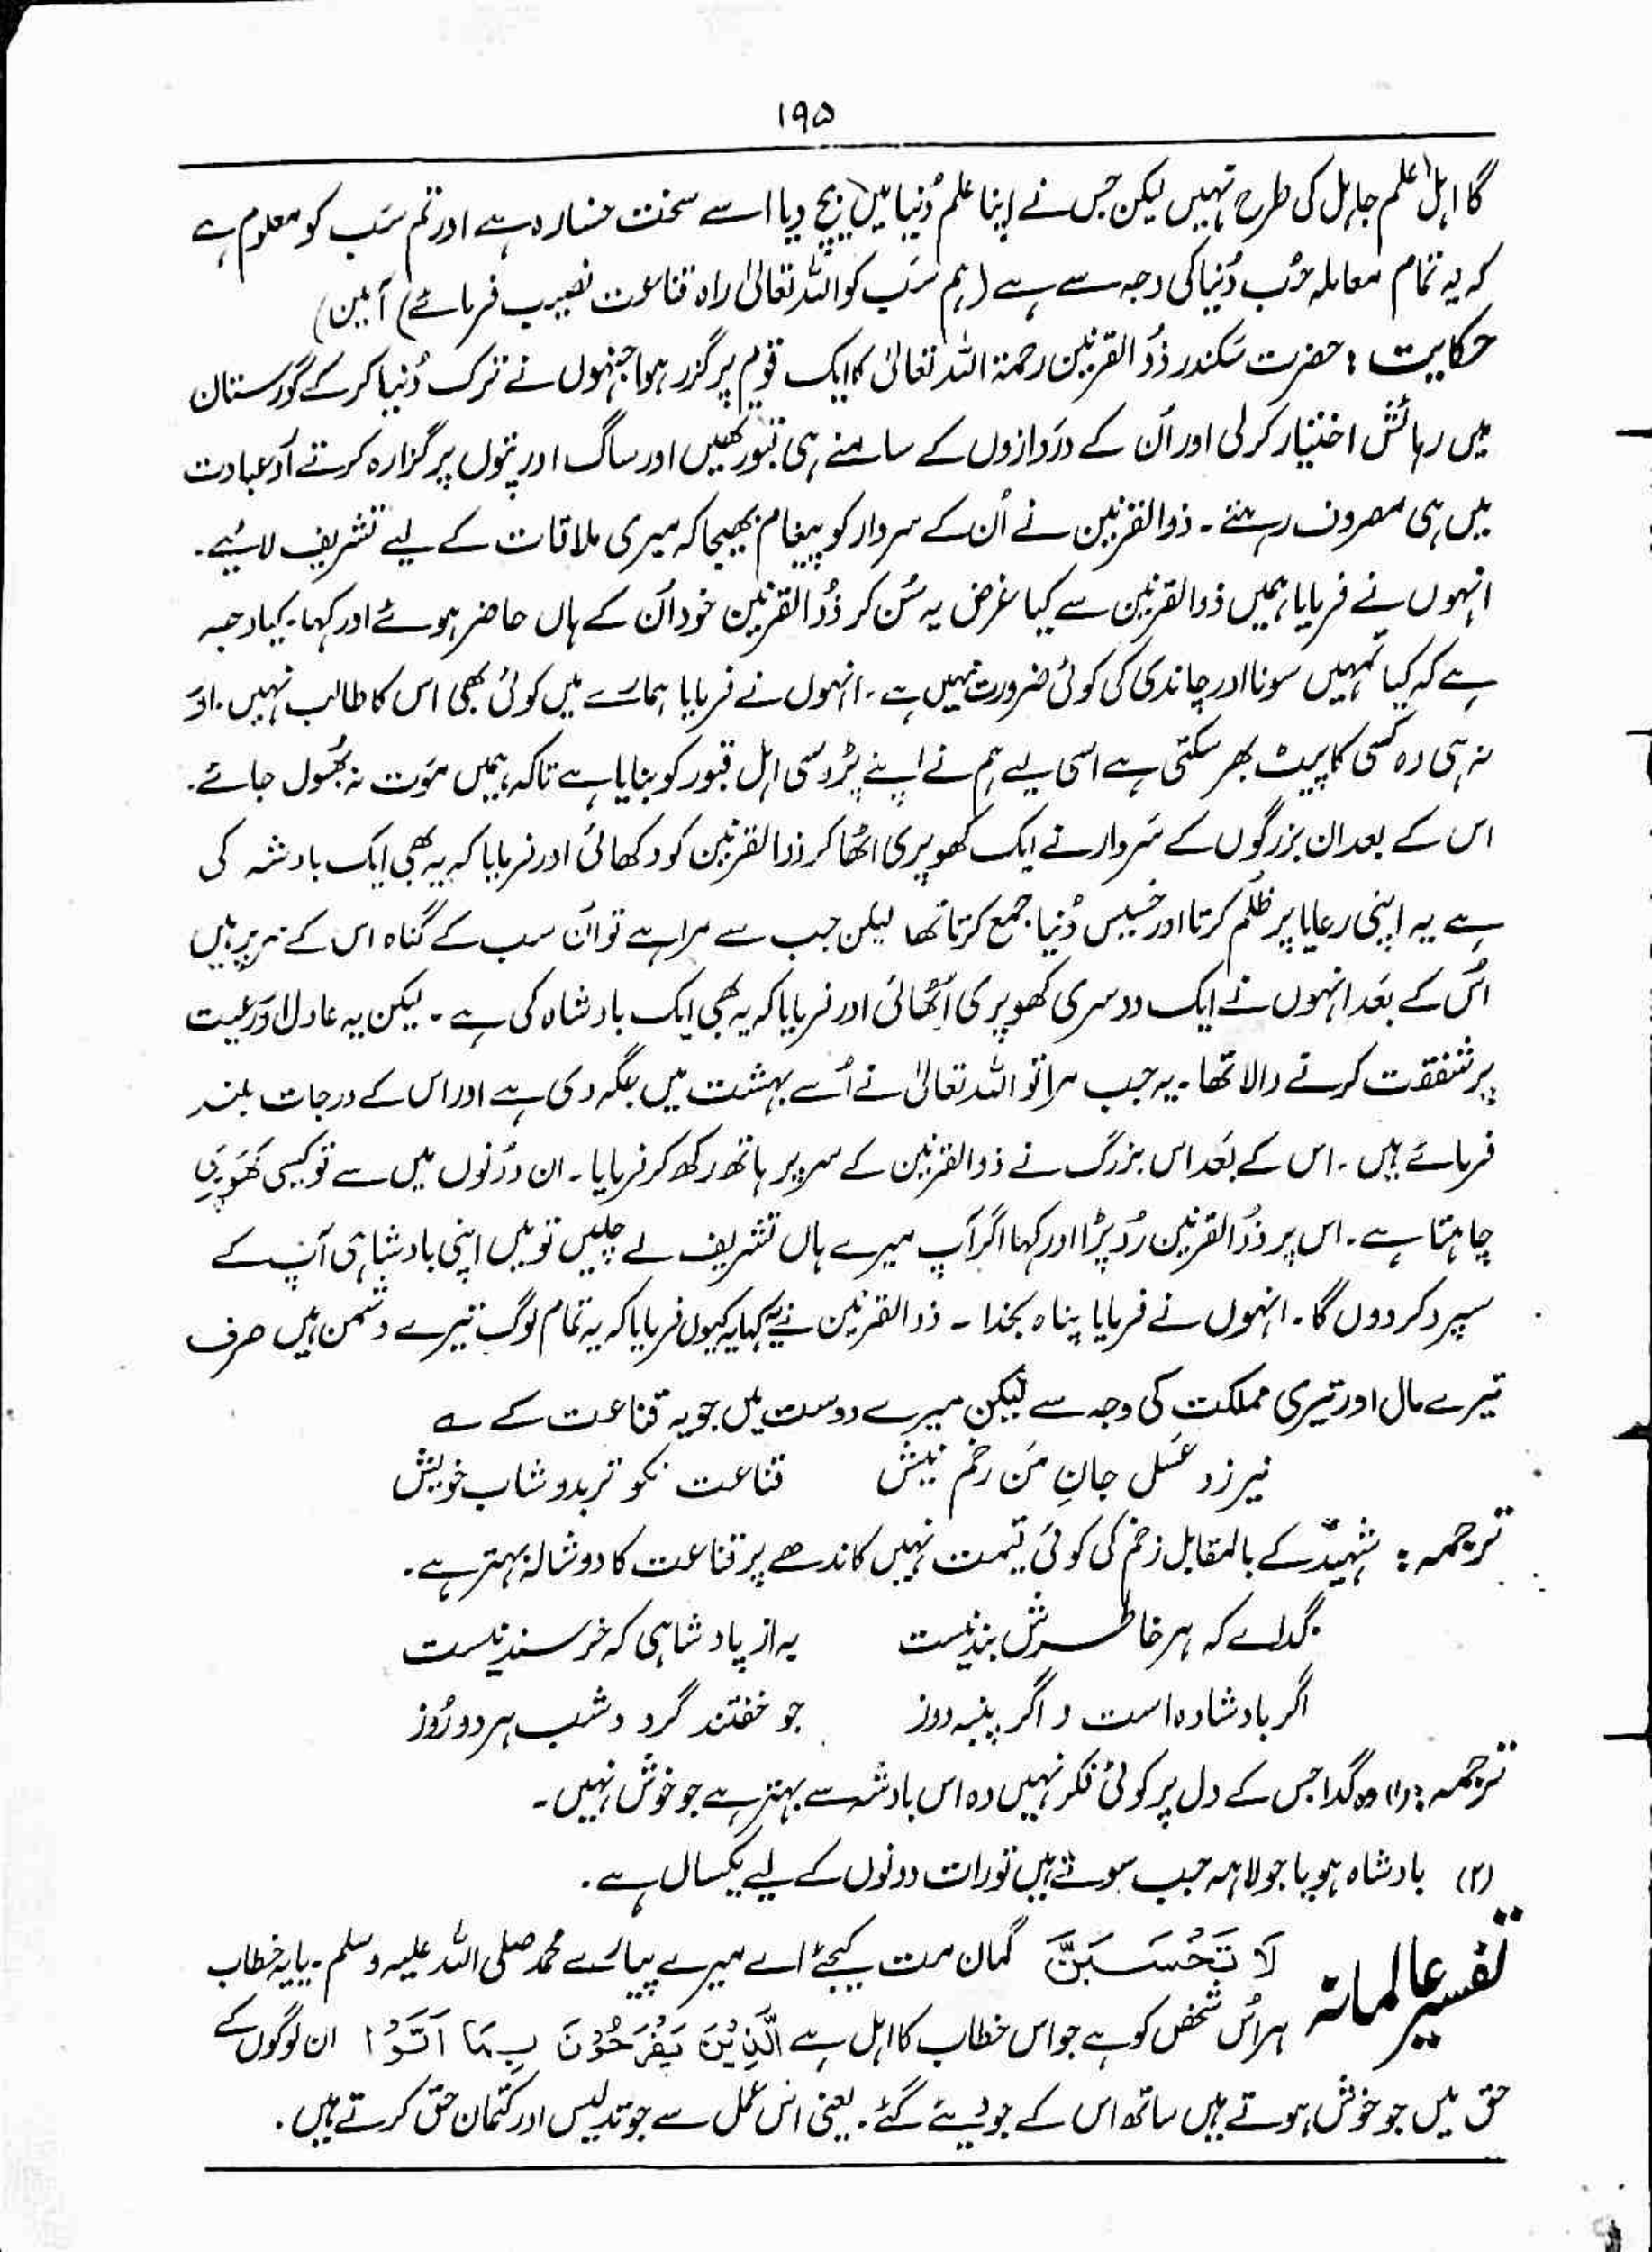 ۱۹۵
گا اہل علم جاہل کی طرح نہیں لیکن جس نے اپنا علم دُنیا میں بیچ دیا اسے سخت خسارہ ہے اور تم سَب کو معلوم ہے
کہ یہ تمام معاملہ حُب دُنیا کی وجہ سے ہے (ہم سَب کو اللہ تعالیٰ راہ قناعت نصیب فرمائے) آمین)
حکایت : حضرت سکندر ذُوالقرنین رحمۃ اللہ تعالیٰ کا ایک قوم پر گزر ہوا جنہوں نے ترک دُنیا کرکے گورستان
میں رہائش اختیار کرلی اور اُن کے دَروازوں کے سامنے ہی قبور تھیں اور ساگ اور پتوں پر گزارہ کرتے اَور عبادت
میں ہی مصروف رہتے ۔ ذوالقرنین نے اُن کے سردار کو پیغام بھیجا کہ میری ملاقات کے لیے تشریف لائیے ۔
انہوں نے فرمایا ہمیں ذوالقرنین سے کیا غرض یہ سُن کر ذُوالقرنین خود اُن کے ہاں حاضر ہوئے اور کہا ۔ کیا وجہ
ہے کہ کیا تمہیں سونا اور چاندی کی کوئی ضرورت نہیں ہے ۔ انہوں نے فرمایا ہمارے میں کوئی بھی اس کا طالب نہیں ۔ اور
نہ ہی وہ کسی کا پیٹ بھر سکتی ہے اسی لیے ہم نے اپنے پڑوسی اہل قبور کو بنایا ہے تاکہ ہمیں موَت نہ بھُول جائے ۔
اس کے بعد ان بزرگوں کے سَردار نے ایک کھوپری اٹھا کر ذوالقرنین کو دکھائی اور فرمایا کہ یہ بھی ایک بادشہ کی
ہے یہ اپنی رعایا پر ظُلم کرتا اور خسیس دُنیا جمع کرتا تھا لیکن جب سے مرا ہے تو اُن سب کے گناہ اس کے سر پر ہیں
اس کے بَعد انہوں نے ایک دوسری کھوپری اُٹھائی اور فرمایا کہ یہ بھی ایک بادشاہ کی ہے ۔ لیکن یہ عادل اَور رعیت
پر شفقت کرنے والا تھا ۔ یہ جب مرا تو اللہ تعالیٰ نے اُسے بہشت میں جگہ دی ہے اور اس کے درجات بلند
فرمائے ہیں ۔ اس کے بَعد اس بزرگ نے ذوالقرنین کے سر پر ہاتھ رکھ کر فرمایا ۔ ان دونوں میں سے تو کیسی کھوپری
چاہتا ہے ۔ اس پر ذوُالقرنین رُو پڑا اور کہا اگر آپ میرے ہاں تشریف لے چلیں تو میں اپنی بادشاہی آپ کے
سپرد کردوں گا ۔ انہوں نے فرمایا پناہ بخدا ۔ ذوالقرنین نے کہا یہ کیوں فرمایا کہ یہ تمام لوگ تیرے دشمن ہیں صرف
تیرے مال اور تیری مملکت کی وجہ سے لیکن میرے دوست ہیں جو یہ قناعت کے ؎
نیرزد عَسَل جانِ مَن زخم نیش قناعت نکو تر بدوشاب خویش
ترجمہ : شہید کے بالمقابل زخم کی کوئی قیمت نہیں کاندھے پر قناعت کا دوشالہ بہتر ہے ۔
گداے کہ ہر خاطرش بند نیست بہ از پادشاہی کہ خرسند نیست
اگر بادشاہ است و اگر پنبہ دوز جو خفتند گردد شب ہر دو رُوز
ترجمہ : (۱) وہ گدا جس کے دل پر کوئی فکر نہیں وہ اس بادشہ سے بہتر ہے جو خوش نہیں ۔
(۲) بادشاہ ہو یا جولاہہ جب سوتے ہیں تو رات دونوں کے لیے یکسال ہے ۔
تفسیر عالمانہ لَا تَحْسَبَنَّ گمان مت کیجئے اے میرے پیارے محمد صلی اللہ علیہ وسلم ۔ یا یہ خطاب
ہر اُس شخص کو ہے جو اس خطاب کا اہل ہے الَّذِيْنَ يَفْرَحُوْنَ بِمَا اَتَوْا ان لوگوں کے
حق میں جو خوش ہوتے ہیں ساتھ اس کے جو دیئے گئے ۔ یعنی اس عمل سے جو تدلیس اور کتمان حق کرتے ہیں ۔